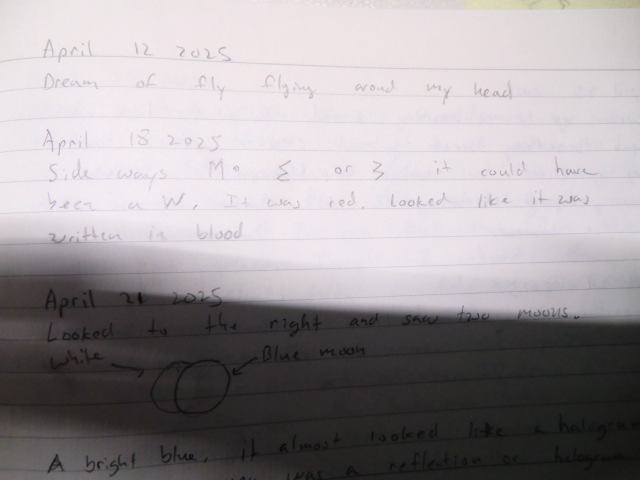 April 12 2025
Dream of fly flying aroud my head
April 18 2025
Side ways M. Σ or 3 it could have
been a W. It was red. Looked like it was
written in blood
April 21 2025
Looked to the right and saw two moons.
White Blue moon
A bright blue, it almost looked like a hologram
was a reflection or hologram